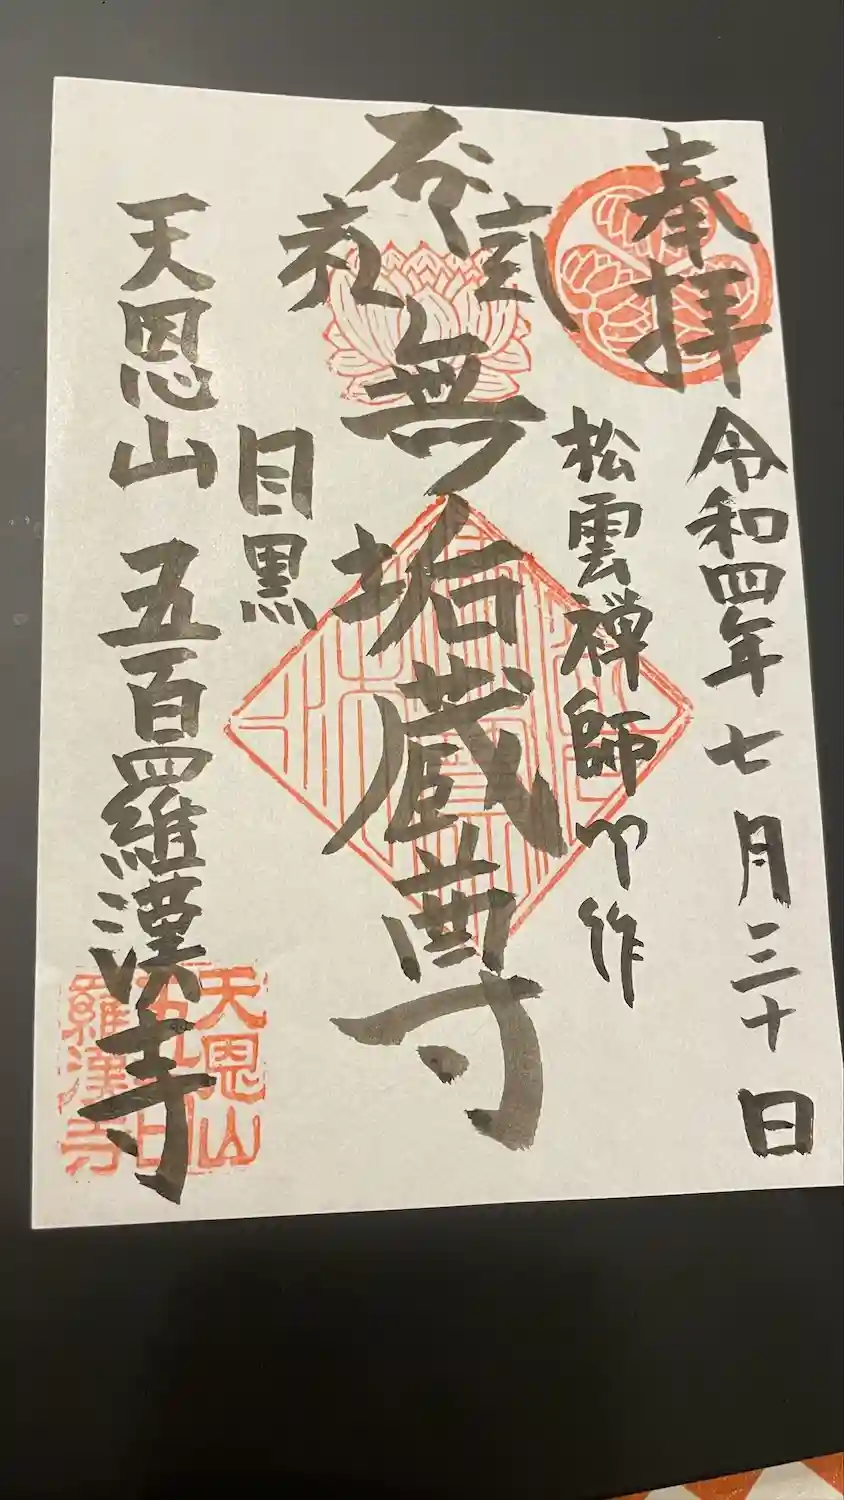 奉拝
令和四年七月三十日
松雲禅師作
無垢蔵尊
目黒
天恩山 五百羅漢寺
天恩山
五百
羅漢寺